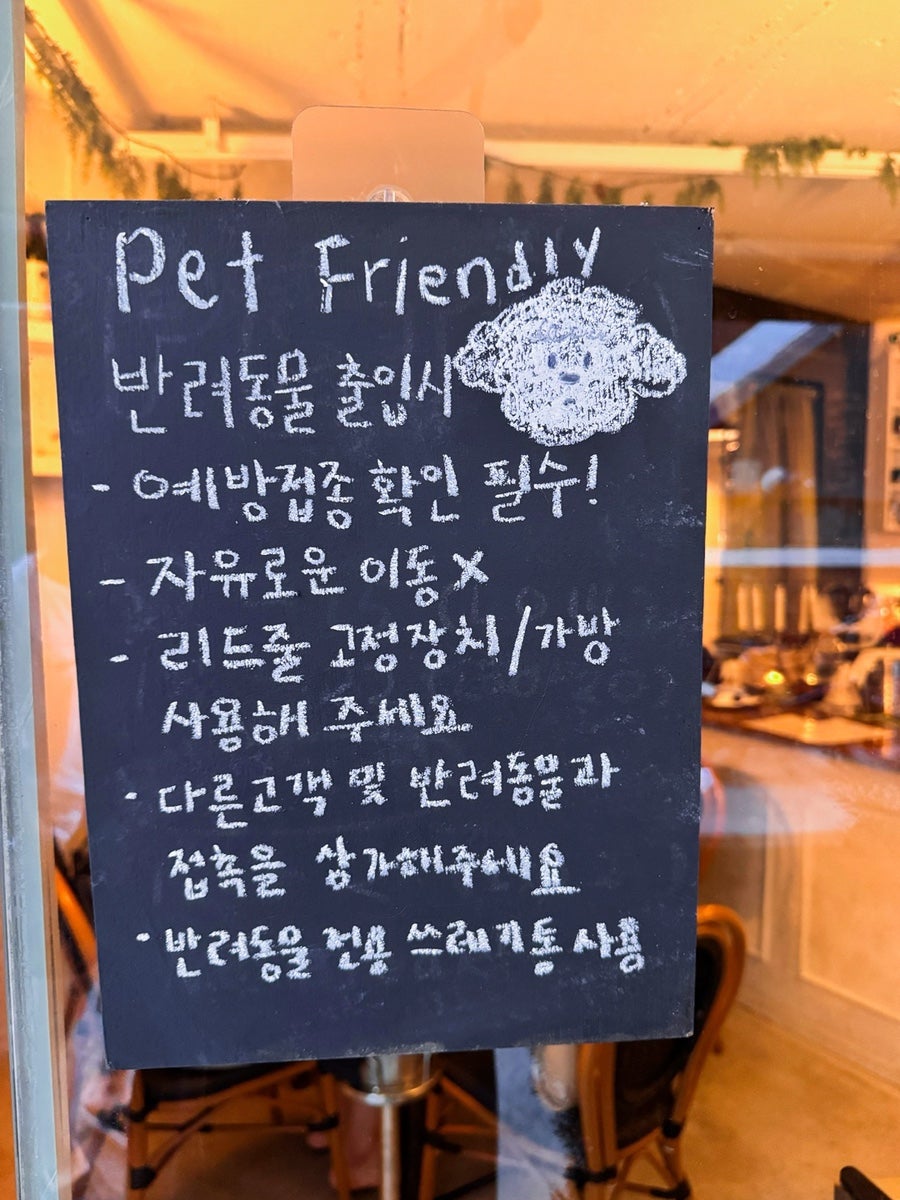 Pet Friendly
반려동물 출입시
- 예방접종 확인 필수!
- 자유로운 이동X
- 리드줄 고정장치/가방
사용해 주세요
· 다른고객 및 반려동물과
접촉을 삼가해주세요
· 반려동물 전용 쓰레기통 사용